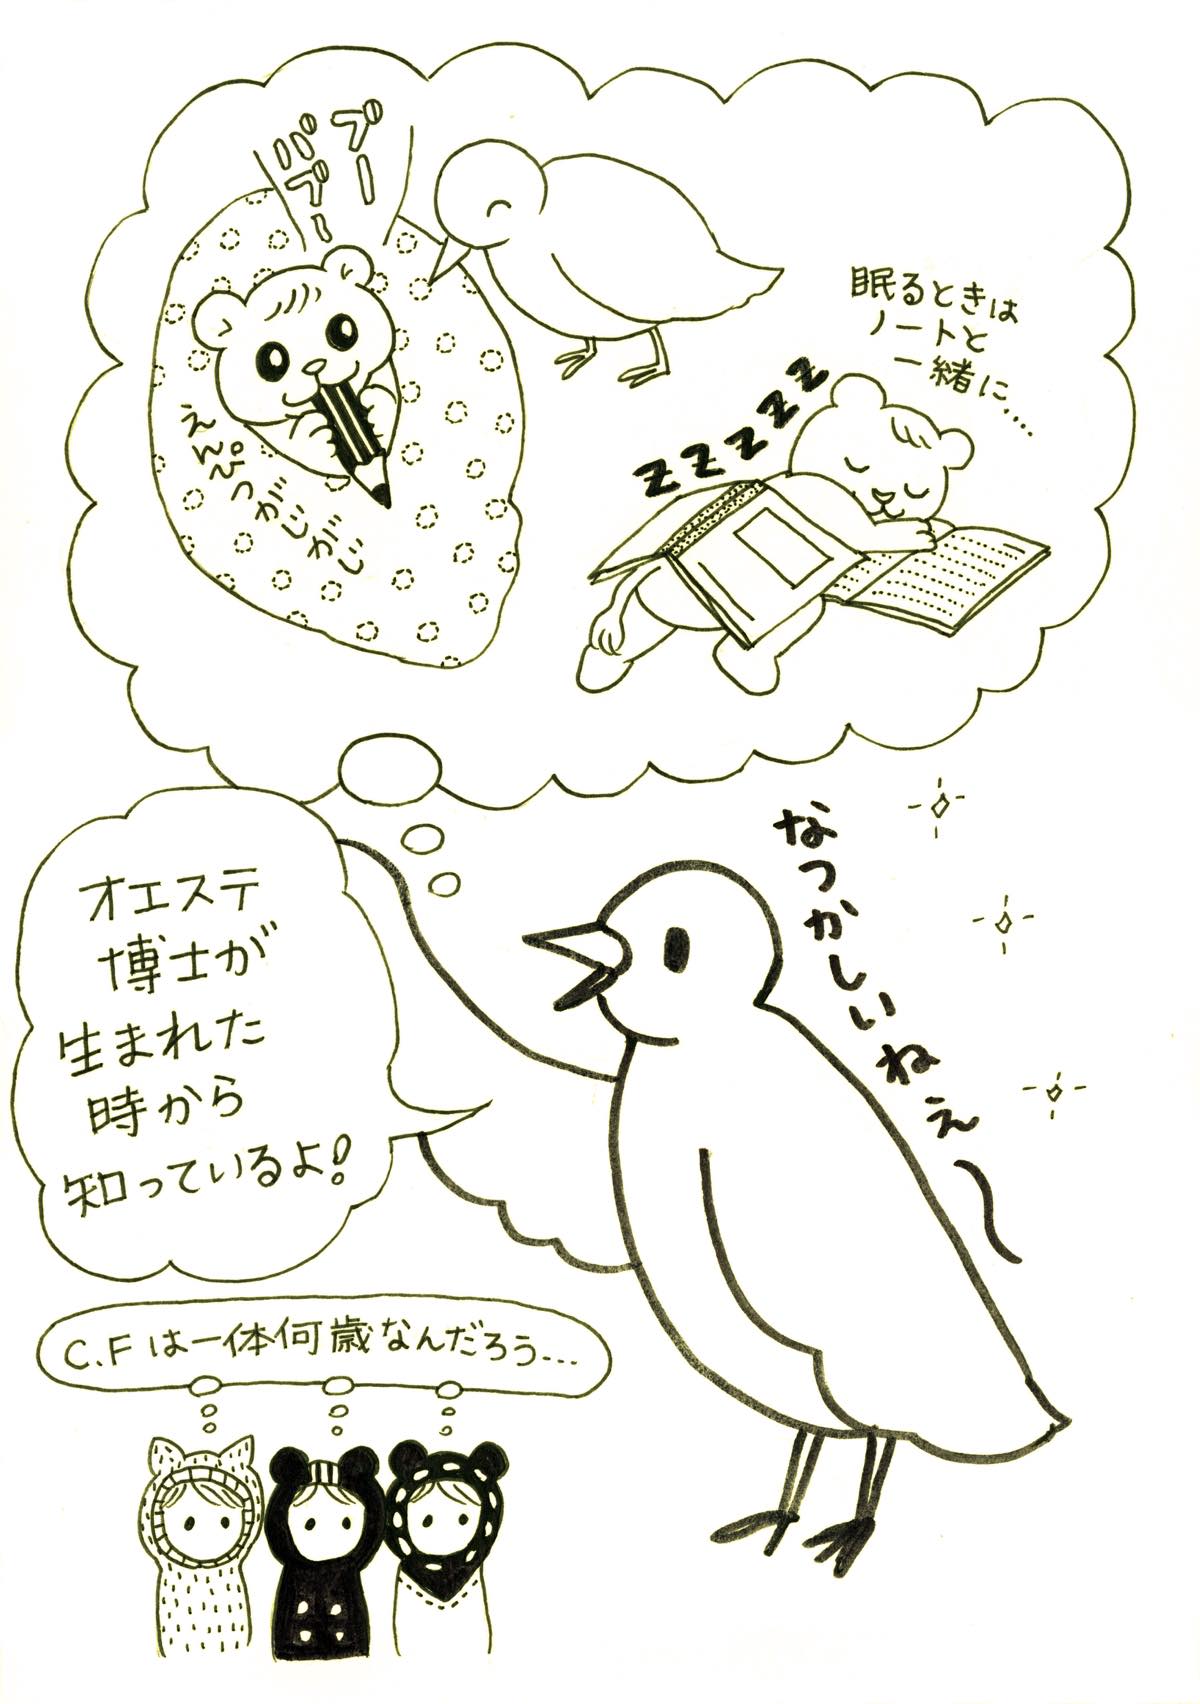 ブー
バブー
えんぴつがじがじ
眠るときは
ノートと
一緒に....
ZZZZZ
なつかしいねぇ〜
オエステ
博士が
生まれた
時から
知っているよ!
C.Fは一体何歳なんだろう...